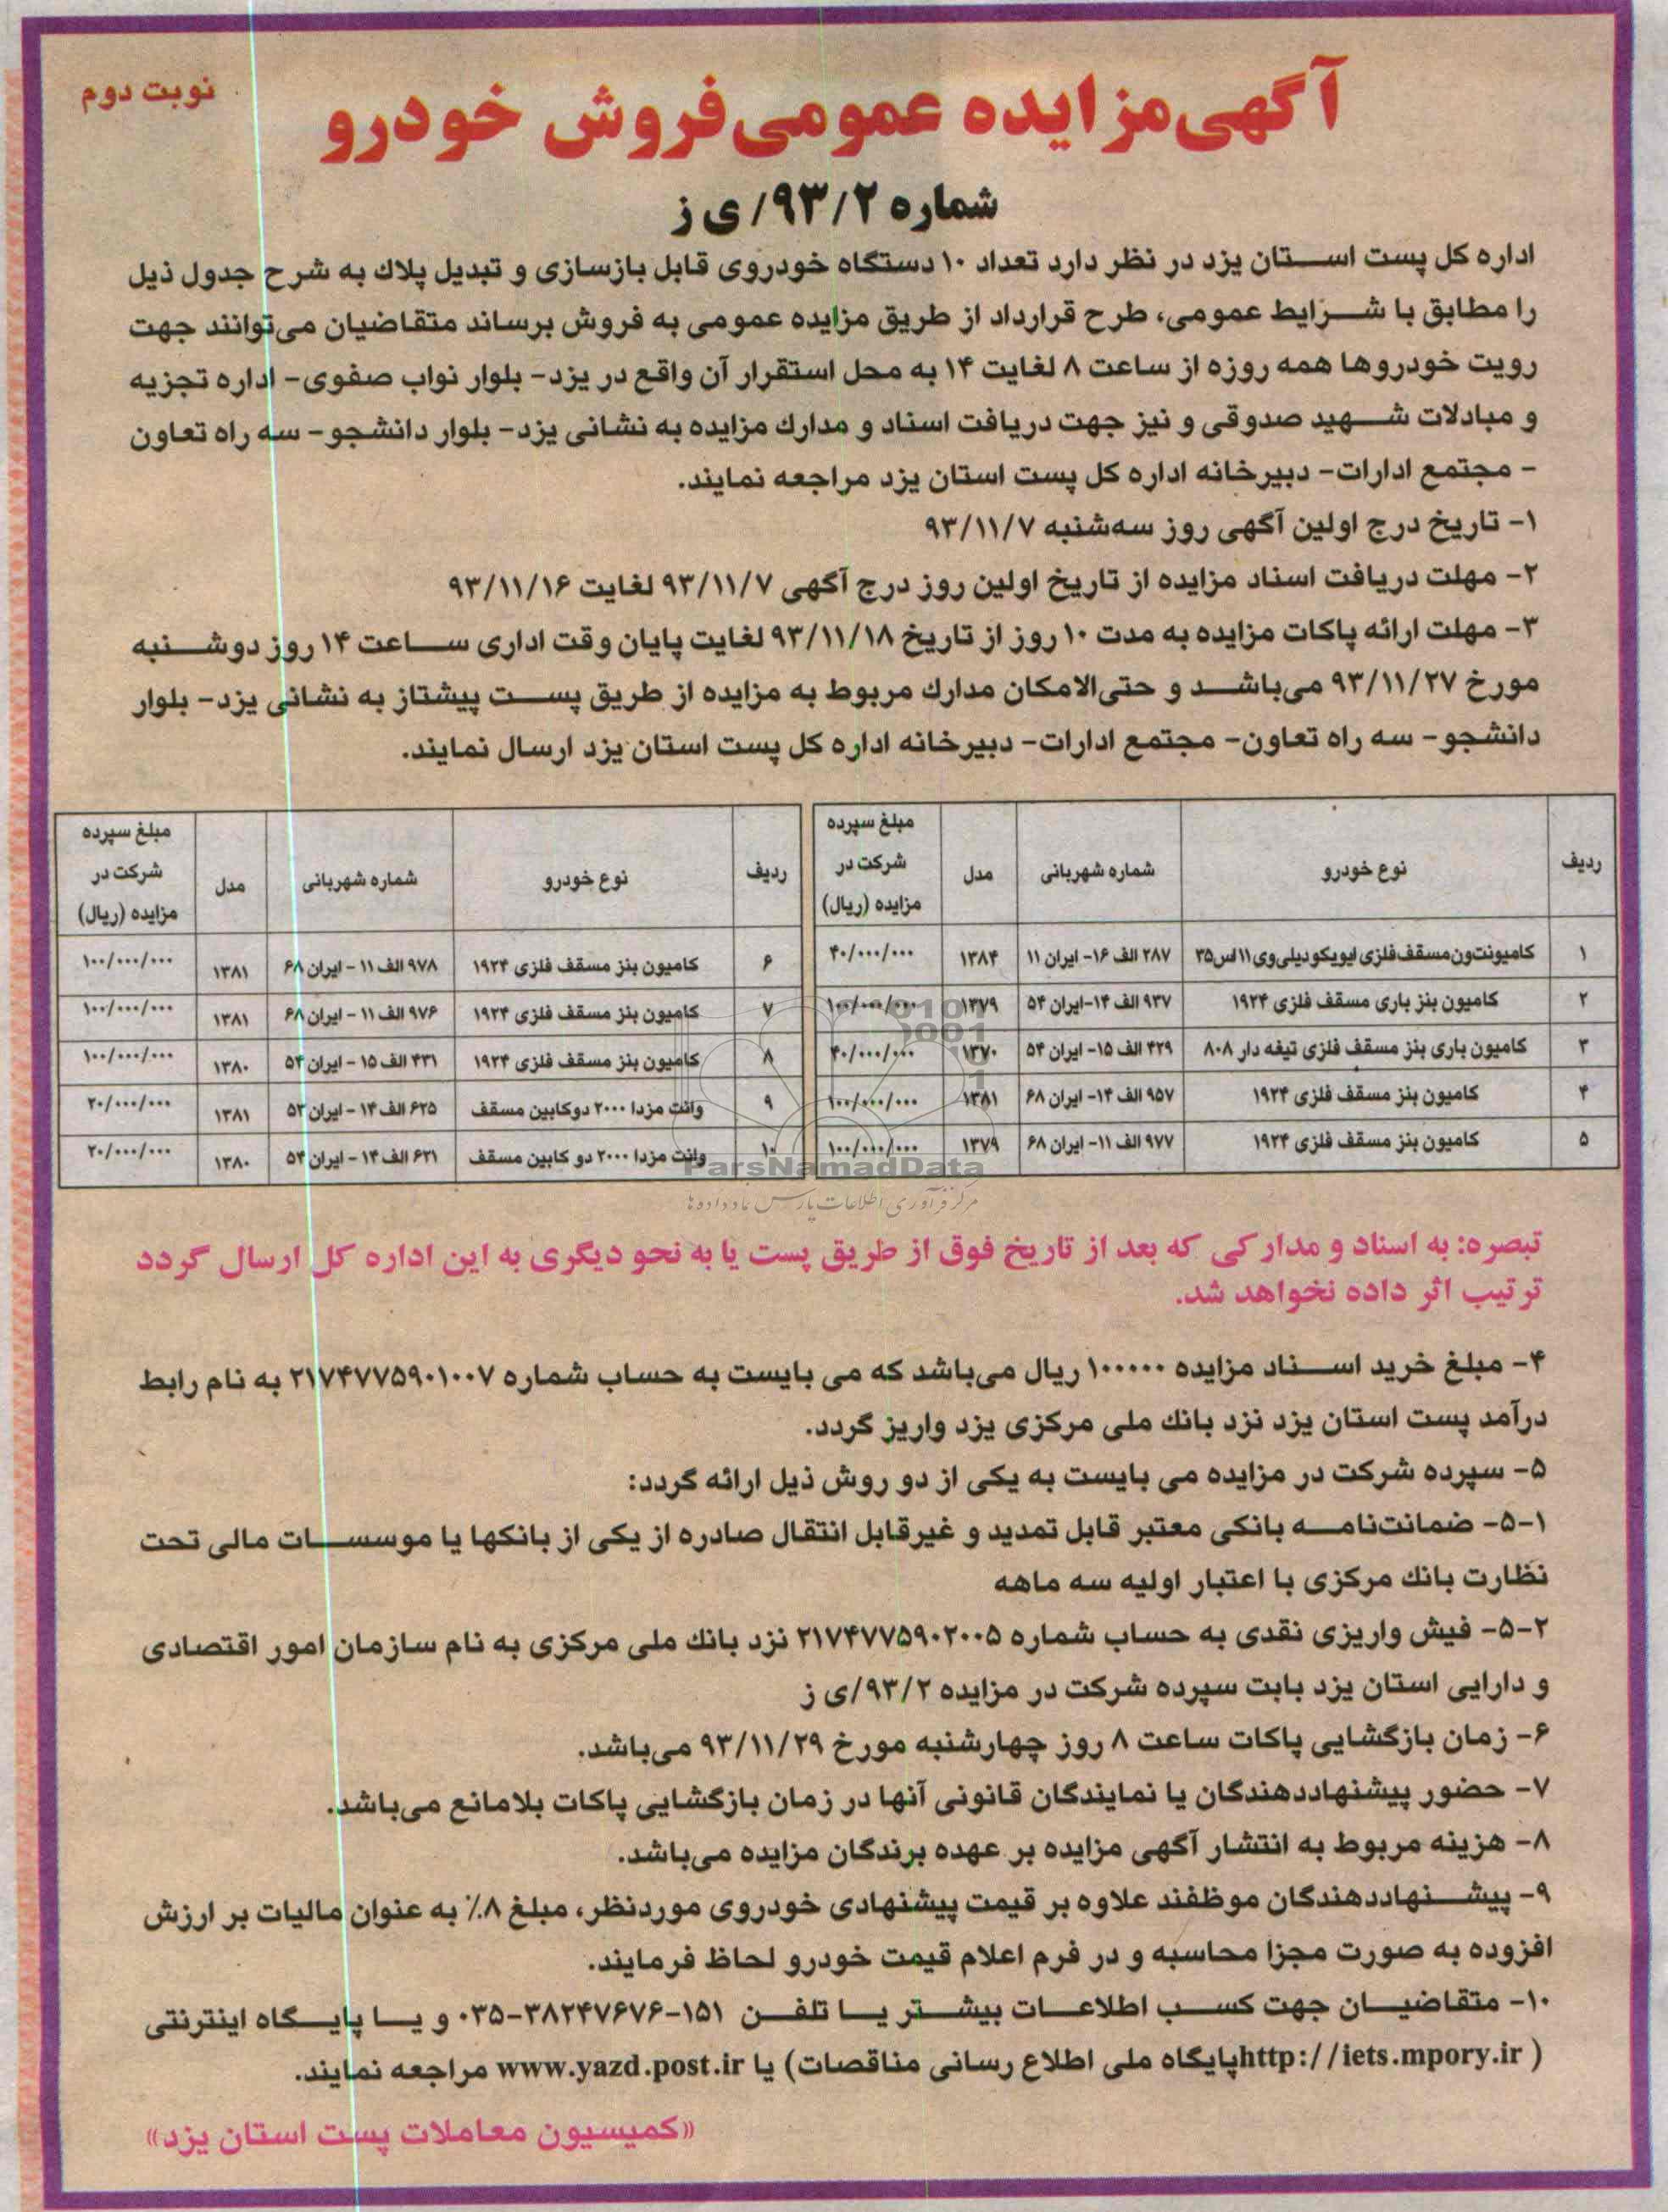 نوبت دوم
آگهی مزایده عمومی فروش خودرو
شماره ۹۳/۲/ ی ز
اداره کل پست استان یزد در نظر دارد تعداد ۱۰ دستگاه خودروی قابل بازسازی و تبدیل پلاك به شرح جدول ذیل
را مطابق با شرایط عمومی، طرح قرارداد از طریق مزایده عمومی به فروش برساند متقاضیان می‌توانند جهت
رویت خودروها همه روزه از ساعت ۸ لغایت ۱۴ به محل استقرار آن واقع در یزد- بلوار نواب صفوی- اداره تجزیه
و مبادلات شهید صدوقی و نیز جهت دریافت اسناد و مدارك مزایده به نشانی یزد- بلوار دانشجو- سه راه تعاون
- مجتمع ادارات- دبیرخانه اداره کل پست استان یزد مراجعه نمایند.
۱- تاریخ درج اولین آگهی روز سه‌شنبه ۹۳/۱۱/۷
۲- مهلت دریافت اسناد مزایده از تاریخ اولین روز درج آگهی ۹۳/۱۱/۷ لغایت ۹۳/۱۱/۱۶
۳- مهلت ارائه پاکات مزایده به مدت ۱۰ روز از تاریخ ۹۳/۱۱/۱۸ لغایت پایان وقت اداری ساعت ۱۴ روز دوشنبه
مورخ ۹۳/۱۱/۲۷ می‌باشد و حتی‌الامکان مدارك مربوط به مزایده از طریق پست پیشتاز به نشانی یزد- بلوار
دانشجو- سه راه تعاون- مجتمع ادارات- دبیرخانه اداره کل پست استان یزد ارسال نمایند.
ردیف نوع خودرو شماره شهربانی مدل مبلغ سپرده شرکت در مزایده (ریال)
۱ کامیونت‌ون‌مسقف‌فلزی ایویکو دیلی‌وی ۱۱اس۳۵ ۲۸۷ الف ۱۶- ایران ۱۱ ۱۳۸۴ ۴۰/۰۰۰/۰۰۰
۲ کامیون بنز باری مسقف فلزی ۱۹۲۴ ۹۳۷ الف ۱۴-ایران ۵۴ ۱۳۷۹ ۱۰۰/۰۰۰/۰۰۰
۳ کامیون باری بنز مسقف فلزی تیغه دار ۸۰۸ ۴۲۹ الف ۱۵- ایران ۵۴ ۱۳۷۰ ۴۰/۰۰۰/۰۰۰
۴ کامیون بنز مسقف فلزی ۱۹۲۴ ۹۵۷ الف ۱۴- ایران ۶۸ ۱۳۸۱ ۱۰۰/۰۰۰/۰۰۰
۵ کامیون بنز مسقف فلزی ۱۹۲۴ ۹۷۷ الف ۱۱- ایران ۶۸ ۱۳۷۹ ۱۰۰/۰۰۰/۰۰۰
ردیف نوع خودرو شماره شهربانی مدل مبلغ سپرده شرکت در مزایده (ریال)
۶ کامیون بنز مسقف فلزی ۱۹۲۴ ۹۷۸ الف ۱۱ - ایران ۶۸ ۱۳۸۱ ۱۰۰/۰۰۰/۰۰۰
۷ کامیون بنز مسقف فلزی ۱۹۲۴ ۹۷۶ الف ۱۱ - ایران ۶۸ ۱۳۸۱ ۱۰۰/۰۰۰/۰۰۰
۸ کامیون بنز مسقف فلزی ۱۹۲۴ ۴۳۱ الف ۱۵ - ایران ۵۴ ۱۳۸۰ ۱۰۰/۰۰۰/۰۰۰
۹ وانت مزدا ۲۰۰۰ دوکابین مسقف ۶۲۵ الف ۱۴ - ایران ۵۴ ۱۳۸۱ ۲۰/۰۰۰/۰۰۰
۱۰ وانت مزدا ۲۰۰۰ دو کابین مسقف ۶۲۱ الف ۱۴ - ایران ۵۴ ۱۳۸۰ ۲۰/۰۰۰/۰۰۰
ParsNamadData
مرکز فرآوری اطلاعات پارس نماد داده‌ها
تبصره: به اسناد و مدارکی که بعد از تاریخ فوق از طریق پست یا به نحو دیگری به این اداره کل ارسال گردد
ترتیب اثر داده نخواهد شد.
۴- مبلغ خرید اسناد مزایده ۱۰۰۰۰۰ ریال می‌باشد که می بایست به حساب شماره ۲۱۷۴۷۷۵۹۰۱۰۰۷ به نام رابط
درآمد پست استان یزد نزد بانك ملی مرکزی یزد واریز گردد.
۵- سپرده شرکت در مزایده می بایست به یکی از دو روش ذیل ارائه گردد:
۵-۱- ضمانت‌نامه بانکی معتبر قابل تمدید و غیرقابل انتقال صادره از یکی از بانکها یا موسسات مالی تحت
نظارت بانك مرکزی با اعتبار اولیه سه ماهه
۵-۲- فیش واریزی نقدی به حساب شماره ۲۱۷۴۷۷۵۹۰۲۰۰۵ نزد بانك ملی مرکزی به نام سازمان امور اقتصادی
و دارایی استان یزد بابت سپرده شرکت در مزایده ۹۳/۲/ی ز
۶- زمان بازگشایی پاکات ساعت ۸ روز چهارشنبه مورخ ۹۳/۱۱/۲۹ می‌باشد.
۷- حضور پیشنهاددهندگان یا نمایندگان قانونی آنها در زمان بازگشایی پاکات بلامانع می‌باشد.
۸- هزینه مربوط به انتشار آگهی مزایده بر عهده برندگان مزایده می‌باشد.
۹- پیشنهاددهندگان موظفند علاوه بر قیمت پیشنهادی خودروی موردنظر، مبلغ ۸٪ به عنوان مالیات بر ارزش
افزوده به صورت مجزا محاسبه و در فرم اعلام قیمت خودرو لحاظ فرمایند.
۱۰- متقاضیان جهت کسب اطلاعات بیشتر یا تلفن ۱۵۱-۳۸۲۴۷۶۷۶-۰۳۵ و یا پایگاه اینترنتی
( http://iets.mpory.irپایگاه ملی اطلاع رسانی مناقصات) یا www.yazd.post.ir مراجعه نمایند.
«کمیسیون معاملات پست استان یزد»